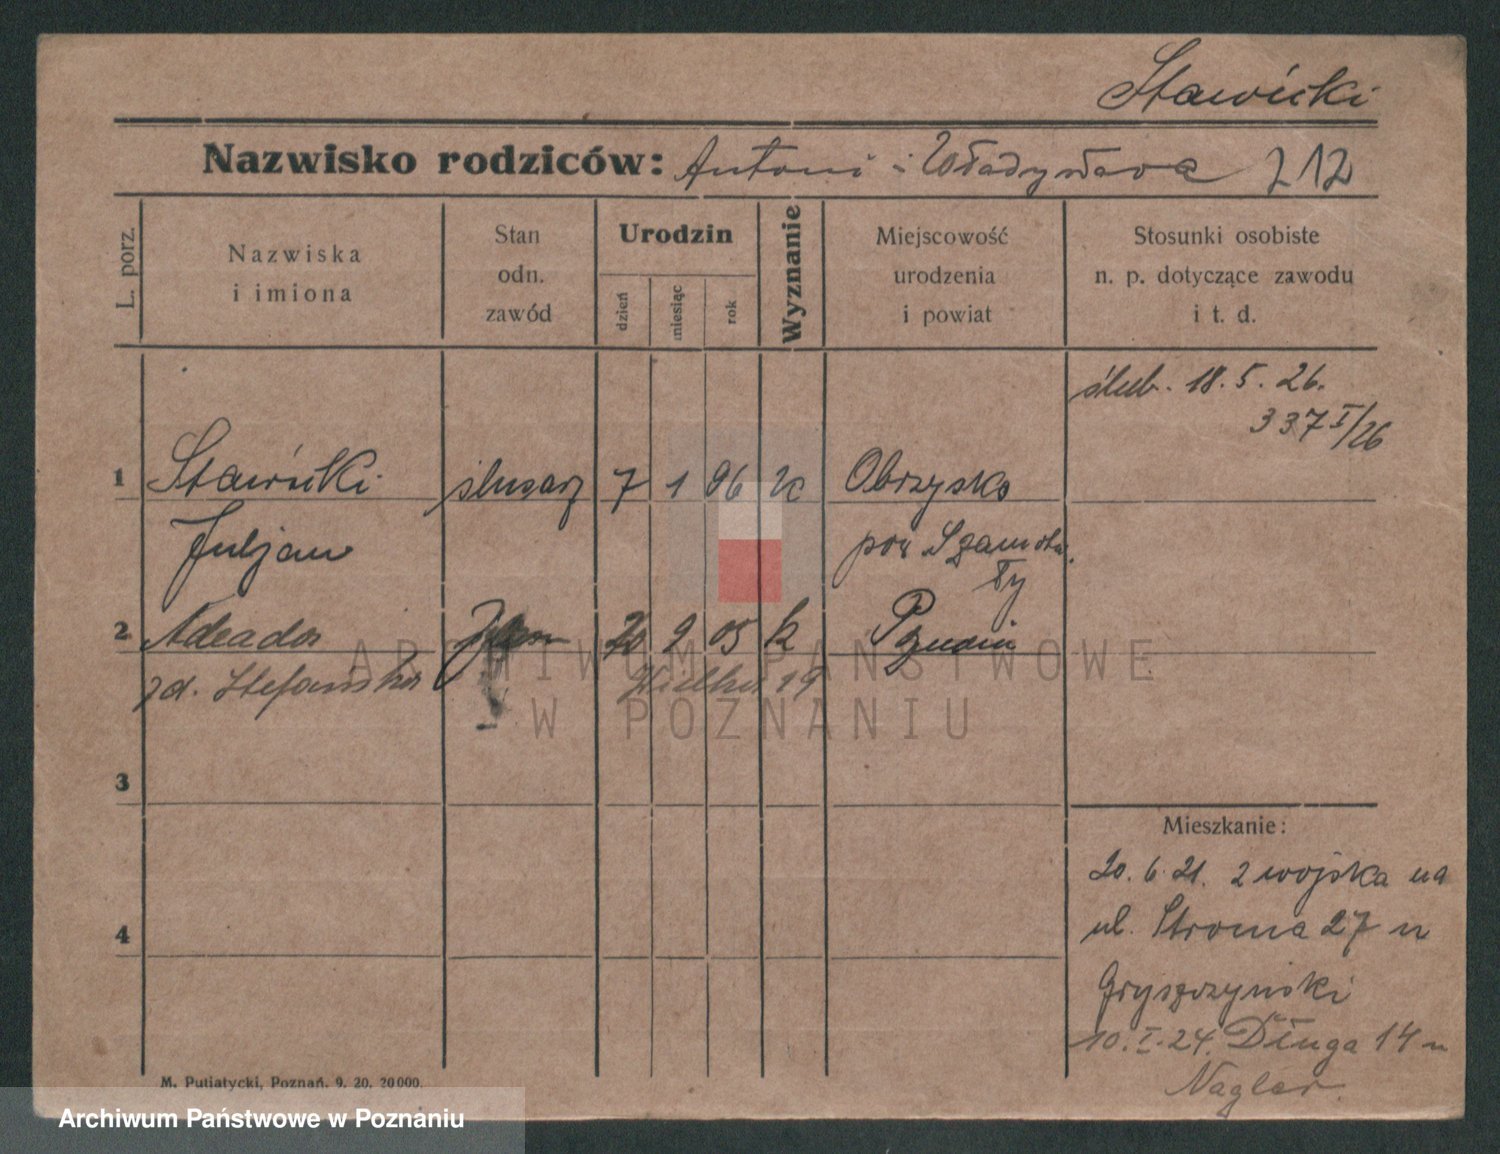 Stawicki
Nazwisko rodziców: Antoni i Władysława 212
L. porz.
Nazwiska
i imiona
Stan
odn.
zawód
Urodzin
dzień
miesiąc
rok
Wyznanie
Miejscowość
urodzenia
i powiat
Stosunki osobiste
n. p. dotyczące zawodu
i t. d.
ślub. 18.5.26.
337 I/26
1 Stawicki ślusarz 7 1 96 k Obrzysko
Juljan pow Szamotu
ły
2 20 9 05 k Poznań
zd. Stefańska 19
3
4
Mieszkanie:
20.6.21. z wojska na
ul. Stroma 27 u
Gryszczyński
10.I.24. Długa 14 u
Nagler.
M. Putiatycki, Poznań. 9. 20. 20000.
ARCHIWUM PAŃSTWOWE
W POZNANIU
Archiwum Państwowe w Poznaniu